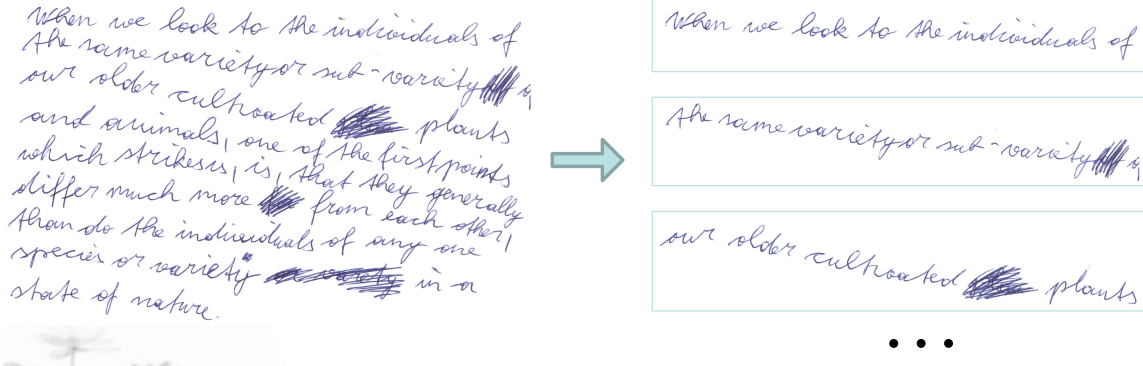 When we look to the individuals of
the same variety or sub-variety
our older cultivated plants
and animals, one of the first points
which strikes us, is, that they generally
differ much more from each other,
than do the individuals of any one
species or variety in a
state of nature.
When we look to the individuals of
the same variety or sub-variety
our older cultivated plants